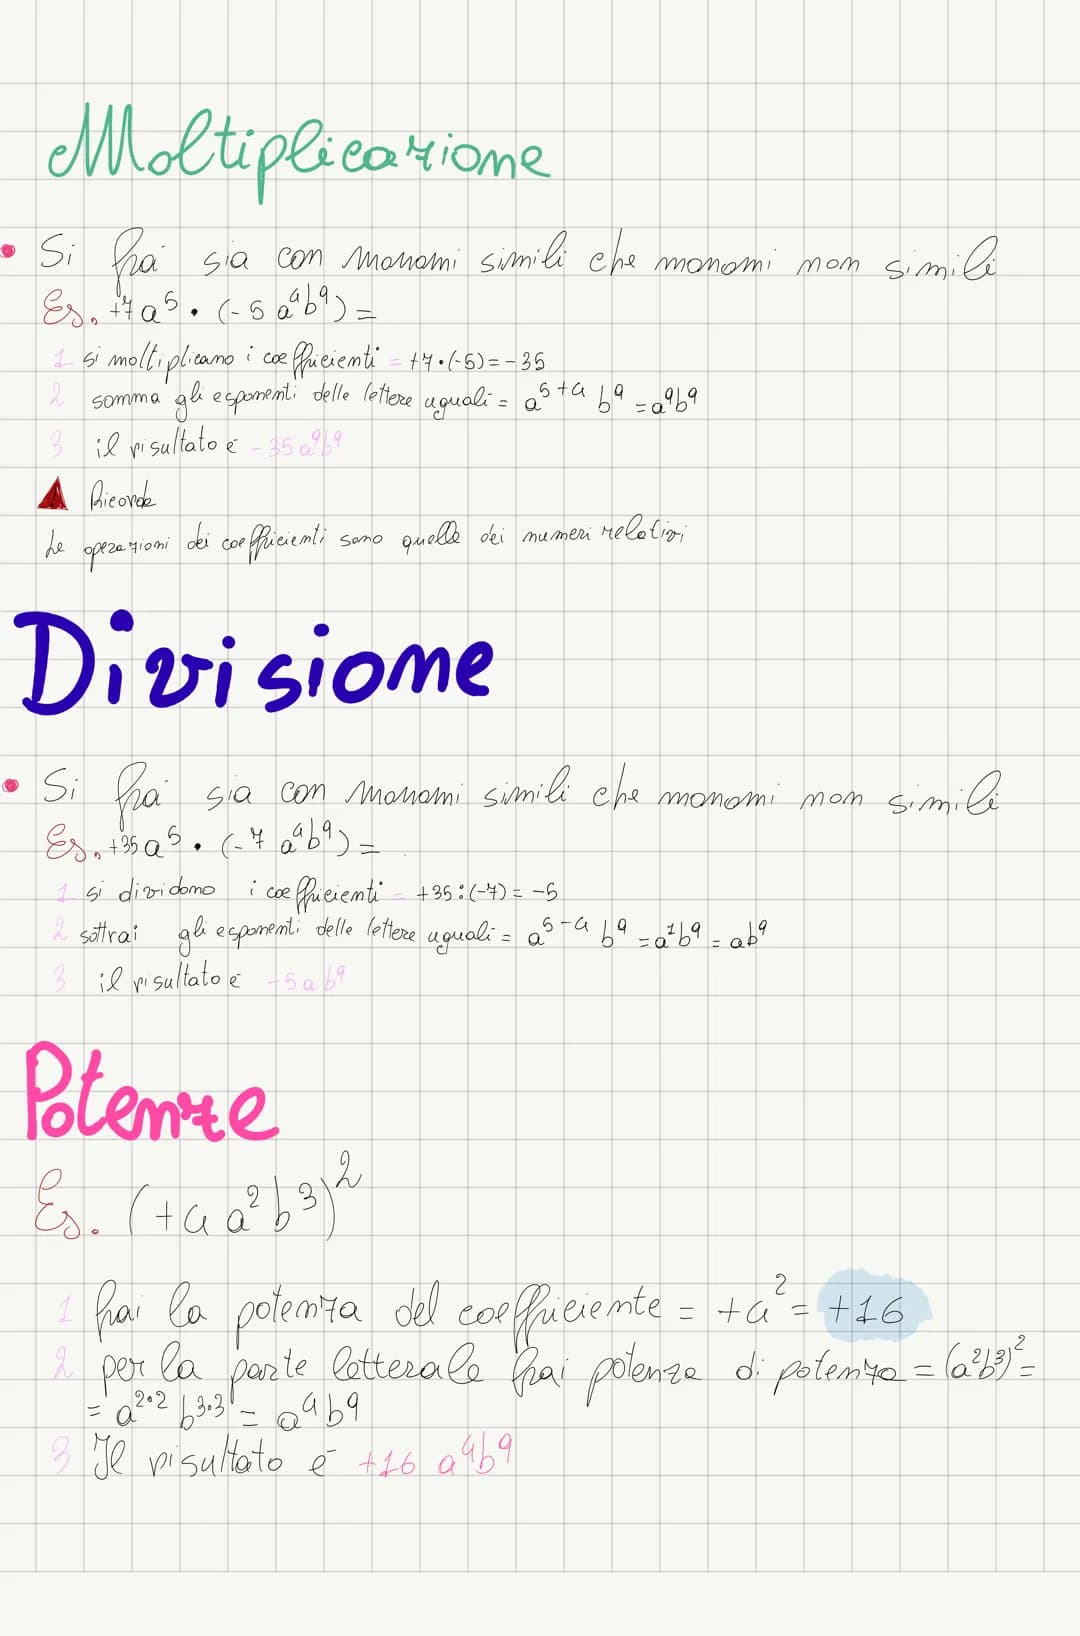 Moltiplicazione
• Si fra sia con monomi simili che monomi non simili
Es. +7a⁵ • (-5 a⁴b⁹) =
1 si moltiplicano i coefficienti = +7•(-5) = -35
2 somma gli esponenti delle lettere uguali = a⁵⁺⁴ b⁹ = a⁹b⁹
3 il risultato è -35a⁹b⁹
Ricorda
Le operazioni dei coefficienti sono quelle dei numeri relativi
Divisione
• Si fra sia con monomi simili che monomi non simili
Es. +35a⁵ • (-7 a⁴b⁹) =
1 si dividono i coefficienti = +35:(-7) = -5
2 sottrai gli esponenti delle lettere uguali = a⁵⁻⁴ b⁹ = a¹b⁹ = ab⁹
3 il risultato è -5ab⁹
Potenze
Es. (+4 a²b³)²
1 frai la potenza del coefficiente = +4² = +16
2 per la parte letterale frai potenze di potenza = (a²b³)² =
= a²•² b³•³ = a⁴b⁹
3 Il risultato è +16 a⁴b⁹